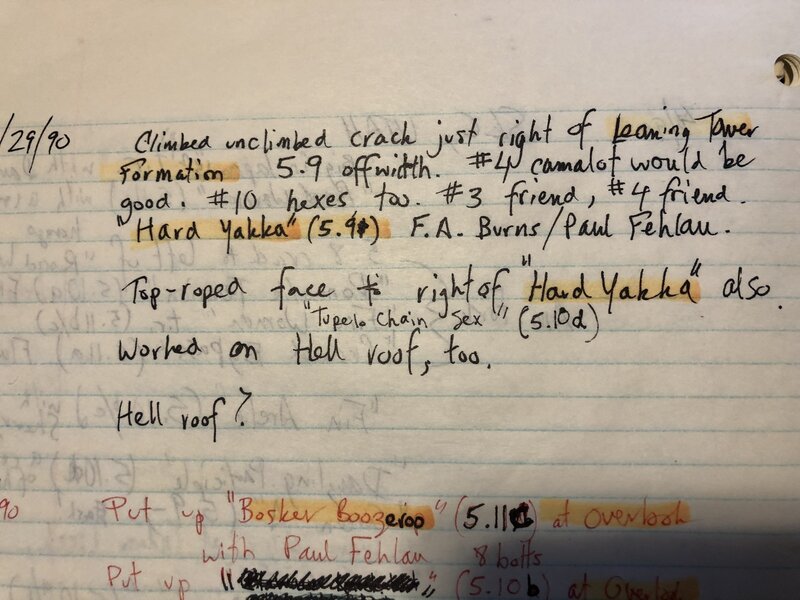 /29/90 Climbed unclimbed crack just right of Leaning Tower
Formation 5.9 offwidth. #4 camalot would be
good. #10 hexes too. #3 friend, #4 friend.
"Hard Yakka" (5.9) F.A. Burns/Paul Fehlau.
Top-roped face to right of "Hard Yakka" also.
"Tupelo Chain Sex" (5.10d)
Worked on Hell roof, too.
Hell roof?
90 Put up "Bosker Boozeroo" (5.11) at Overlook
with Paul Fehlau 8 bolts
Put up " " (5.10b) at Overlook